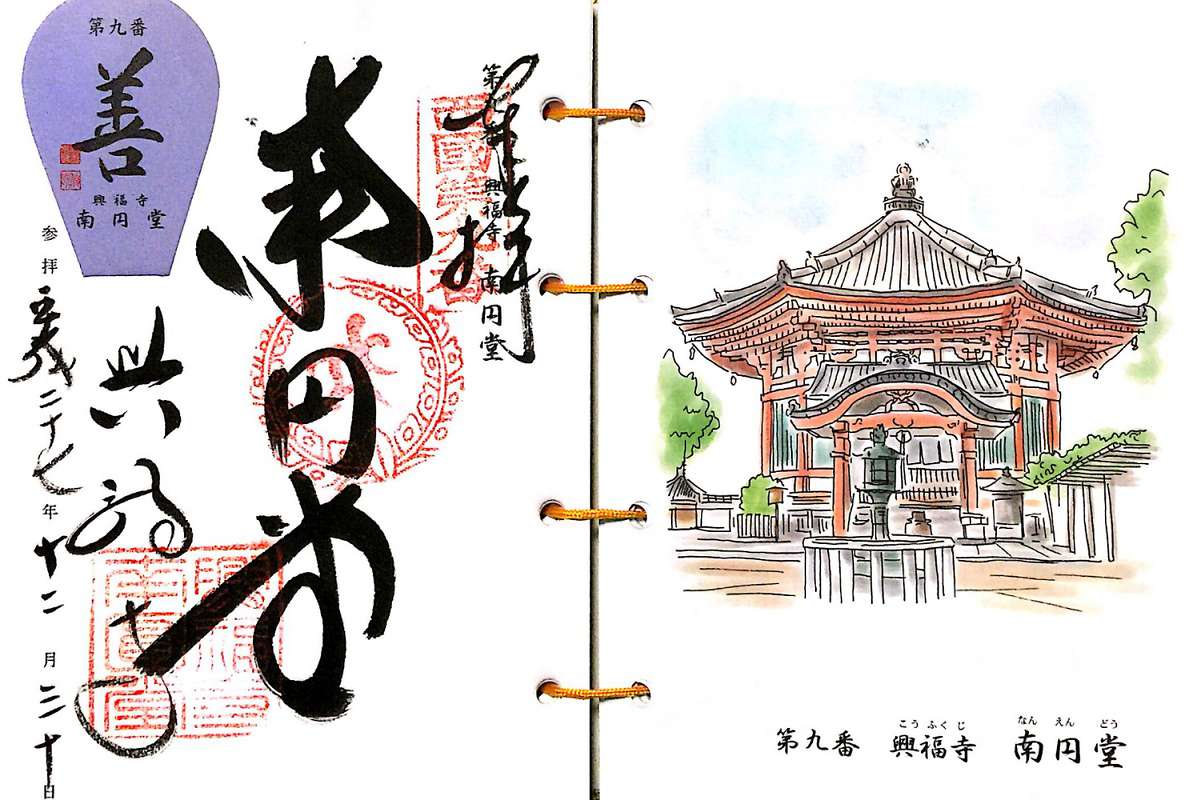 第九番
善
興福寺
南円堂
奉拝
第九番 興福寺 南円堂
西國第九番
南円堂
興福寺
参拝 平成二十七年十二月三十日
こうふくじ なんえんどう
第九番 興福寺 南円堂